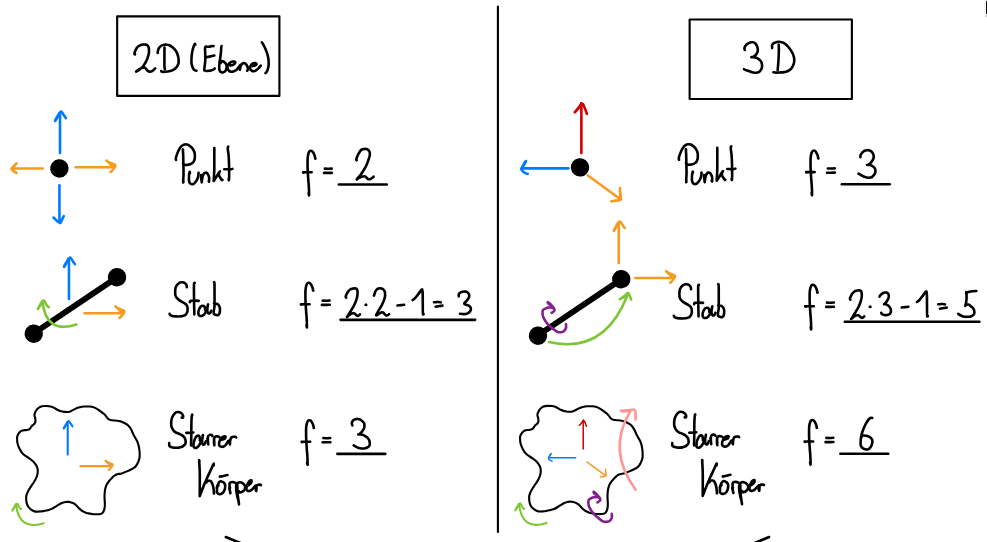 2D (Ebene)
Punkt f = 2
Stab f = 2·2-1 = 3
Starrer f = 3
Körper
3D
Punkt f = 3
Stab f = 2·3-1 = 5
Starrer f = 6
Körper